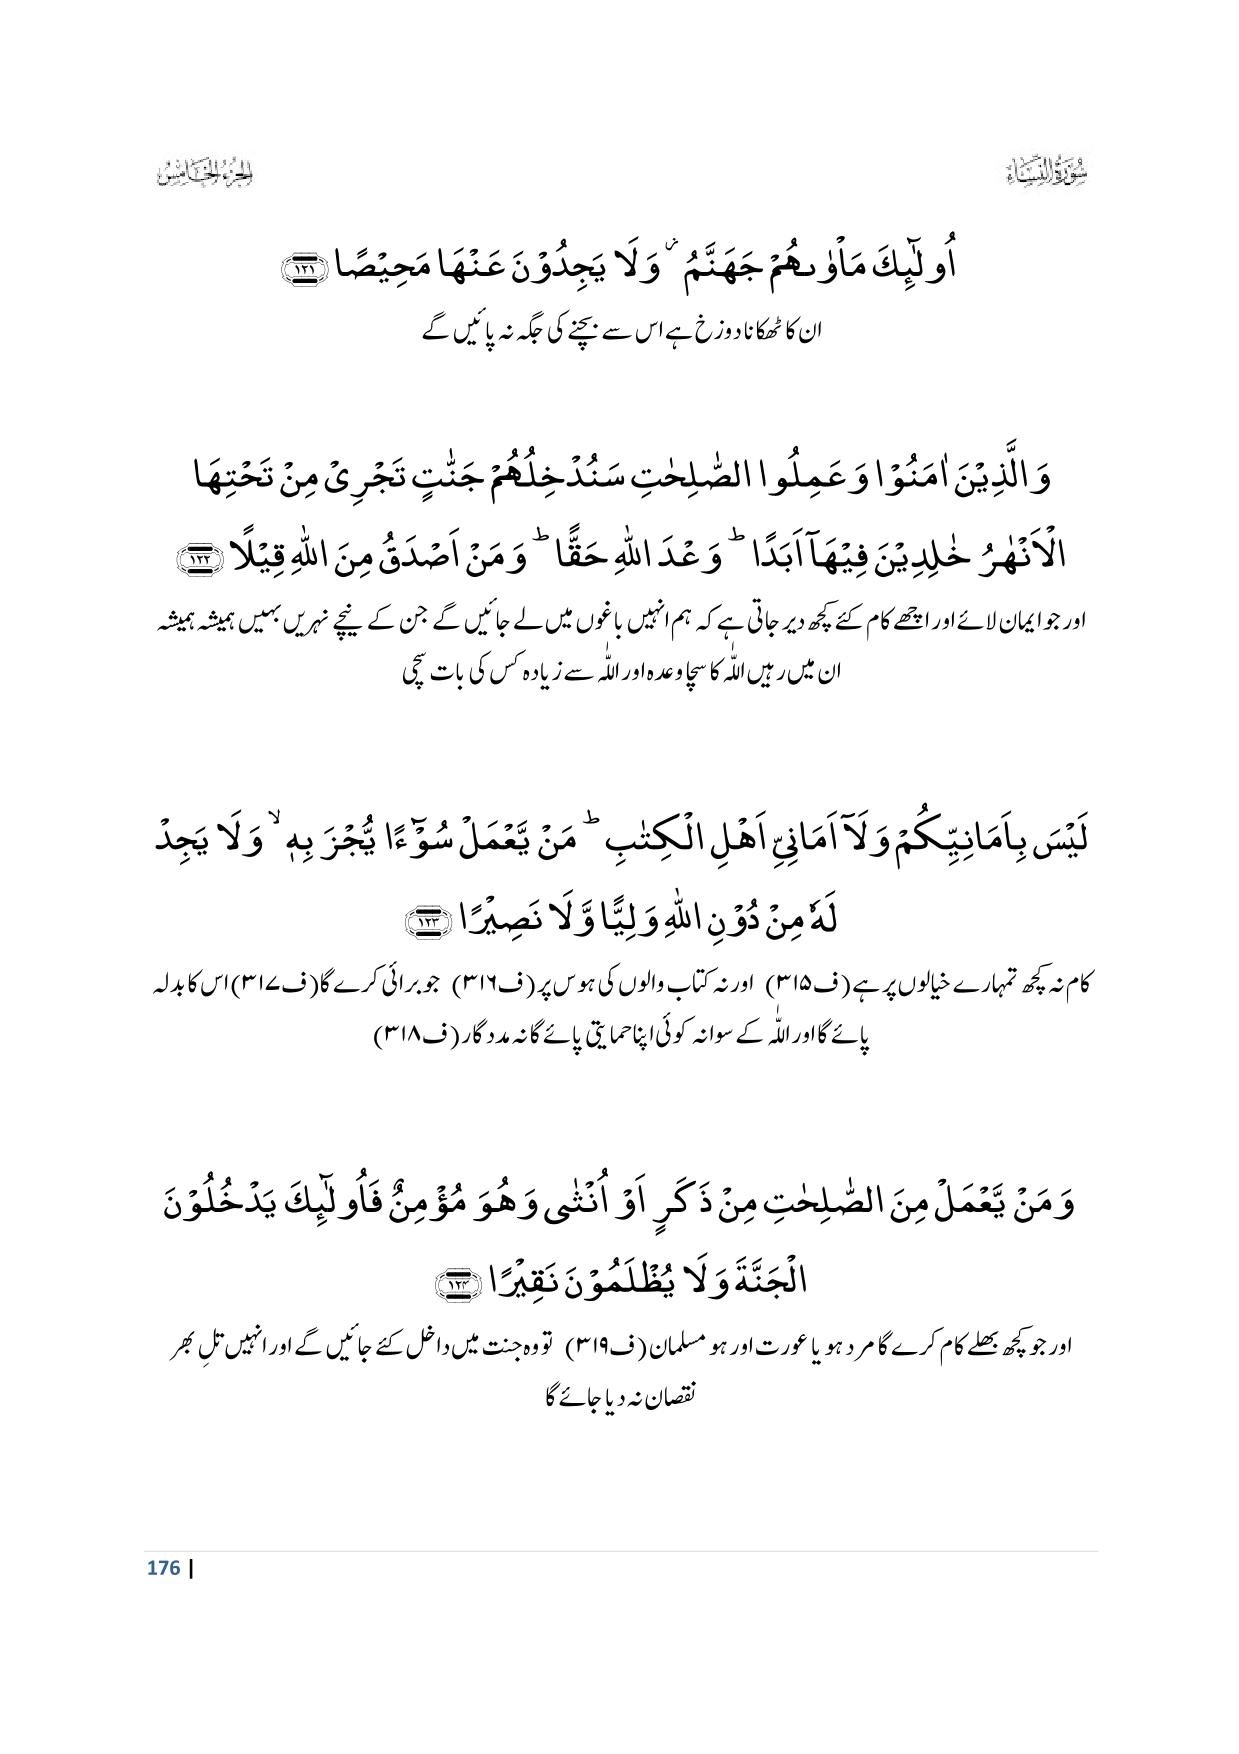 سُوْرَةُ النِّسَاء الجزء الخامس
اُولٰٓئِكَ مَاْوٰىهُمْ جَهَنَّمُ ۫ وَلَا يَجِدُوْنَ عَنْهَا مَحِيْصًا ﴿۱۲۱﴾
ان کا ٹھکانا دوزخ ہے اس سے بچنے کی جگہ نہ پائیں گے
وَالَّذِيْنَ اٰمَنُوْا وَعَمِلُوا الصّٰلِحٰتِ سَنُدْخِلُهُمْ جَنّٰتٍ تَجْرِيْ مِنْ تَحْتِهَا
الْاَنْهٰرُ خٰلِدِيْنَ فِيْهَآ اَبَدًا ؕ وَعْدَ اللهِ حَقًّا ؕ وَمَنْ اَصْدَقُ مِنَ اللهِ قِيْلًا ﴿۱۲۲﴾
اور جو ایمان لائے اور اچھے کام کئے کچھ دیر جاتی ہے کہ ہم انہیں باغوں میں لے جائیں گے جن کے نیچے نہریں بہیں ہمیشہ ہمیشہ
ان میں رہیں اللّٰہ کا سچا وعدہ اور اللّٰہ سے زیادہ کس کی بات سچی
لَيْسَ بِاَمَانِيِّكُمْ وَلَآ اَمَانِيِّ اَهْلِ الْكِتٰبِ ؕ مَنْ يَّعْمَلْ سُوْٓءًا يُّجْزَ بِهٖ ۙ وَلَا يَجِدْ
لَهٗ مِنْ دُوْنِ اللهِ وَلِيًّا وَّلَا نَصِيْرًا ﴿۱۲۳﴾
کام نہ کچھ تمہارے خیالوں پر ہے (ف۳۱۵) اور نہ کتاب والوں کی ہوس پر (ف۳۱۶) جو برائی کرے گا (ف۳۱۷) اس کا بدلہ
پائے گا اور اللّٰہ کے سوا نہ کوئی اپنا حمایتی پائے گا نہ مددگار (ف۳۱۸)
وَمَنْ يَّعْمَلْ مِنَ الصّٰلِحٰتِ مِنْ ذَكَرٍ اَوْ اُنْثٰى وَهُوَ مُؤْمِنٌ فَاُولٰٓئِكَ يَدْخُلُوْنَ
الْجَنَّةَ وَلَا يُظْلَمُوْنَ نَقِيْرًا ﴿۱۲۴﴾
اور جو کچھ بھلے کام کرے گا مرد ہو یا عورت اور ہو مسلمان (ف۳۱۹) تو وہ جنت میں داخل کئے جائیں گے اور انہیں تلِ بھر
نقصان نہ دیا جائے گا
176 |